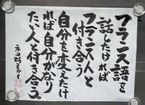 フランス語を
話したければ
フランス人と
付き合う
自分を変えたけ
れば自分がなり
たい人と付き合う